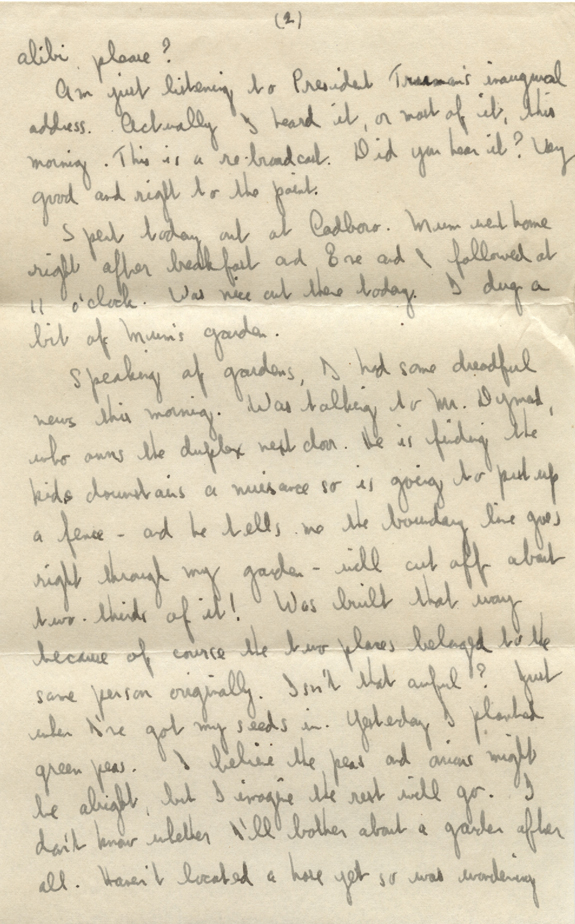 (2)
alibi, please?
Am just listening to President Truman's inaugural
address. Actually I heard it, or most of it, this
morning. This is a re-broadcast. Did you hear it? Very
good and right to the point.
Spent today out at Cadboro. Mum went home
right after breakfast and Eve and I followed at
11 o'clock. Was nice out there today. I dug a
bit of Mum's garden.
Speaking of gardens, I had some dreadful
news this morning. Was talking to Mr.
who owns the duplex next door. He is finding the
kids downstairs a nuisance so is going to put up
a fence - and he tells me the boundary line goes
right through my garden - will cut off about
two-thirds of it! Was built that way
because of course the two places belonged to the
same person originally. Isn't that awful? Just
when I've got my seeds in. Yesterday I planted
green peas. I believe the peas and onions might
be alright, but I imagine the rest will go. I
don't know whether I'll bother about a garden after
all. Haven't located a hose yet so was wondering